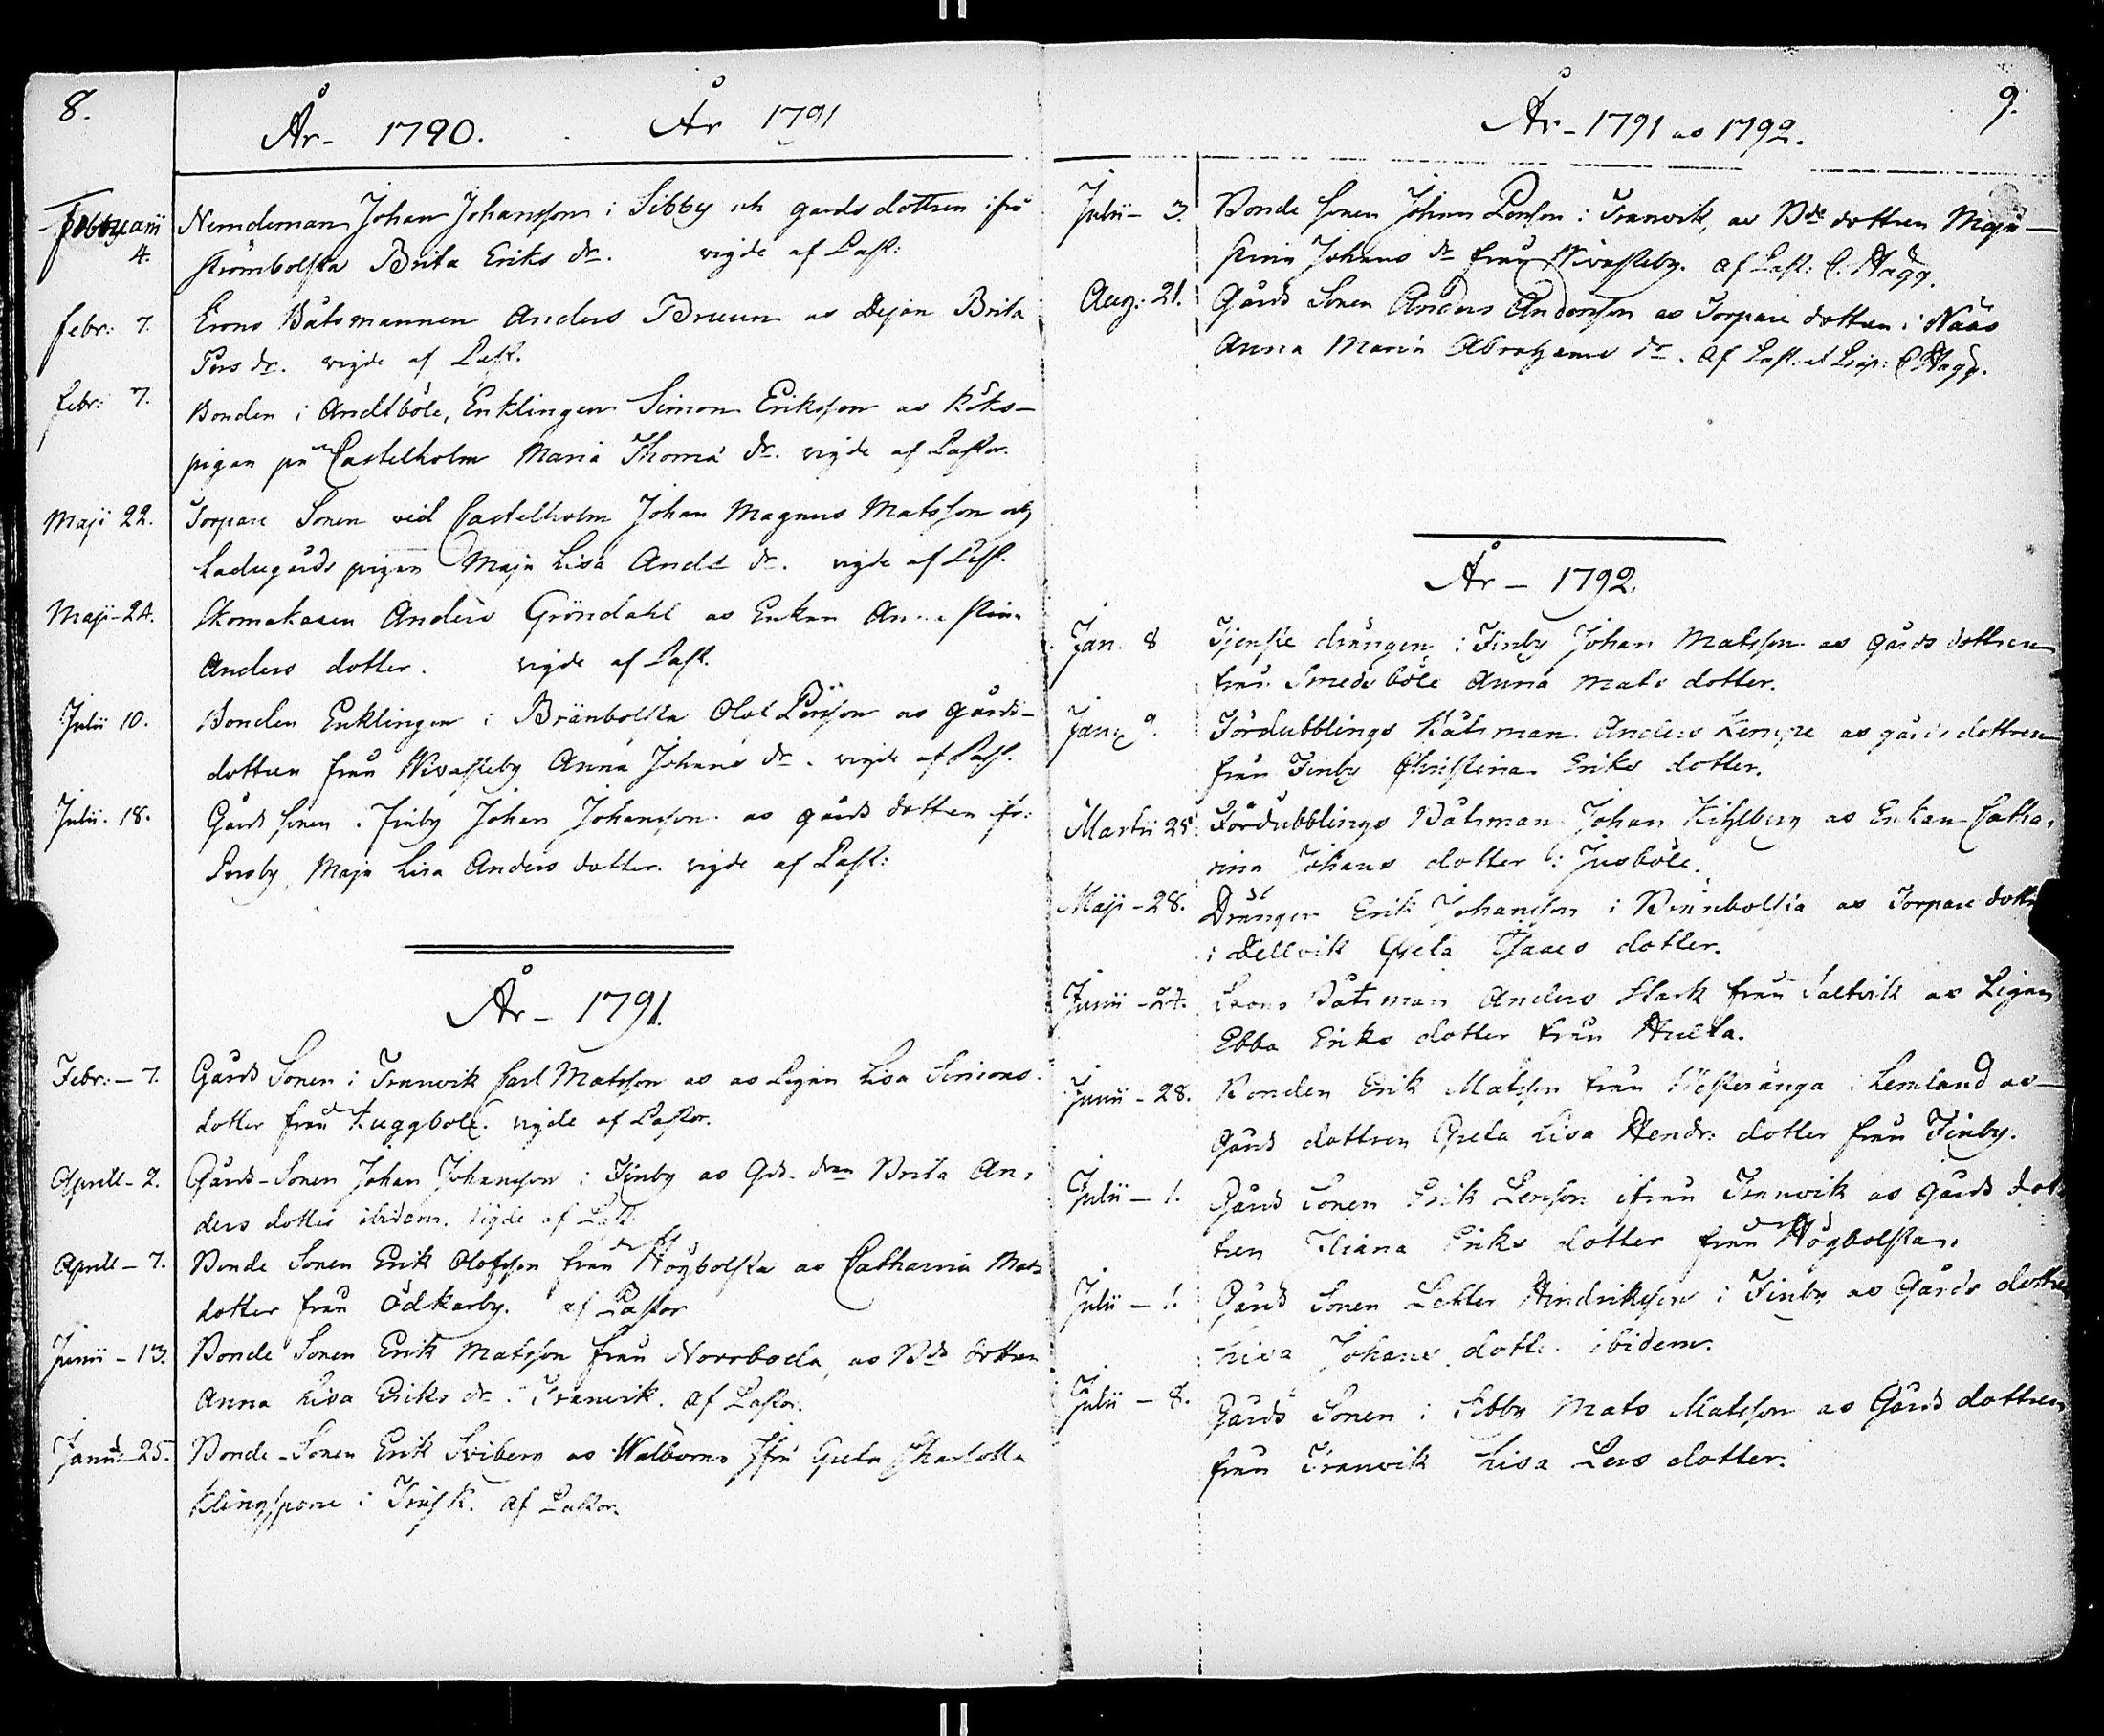 8.
År - 1790. År 1791
Februarii 4. Nemdeman Johan Johansson i Sibby och gårds dottren ifrå
Strömbolsta Brita Eriks dr. vigde af Past:
Febr: 7. Crono Båtsmannen Anders Bruun as Dejan Brita
Pers dr. vigde af Past.
Febr: 7. Bonden i Andtböle, Enklingen Simon Eriksson as Köks-
pigan på Castelholm Maria Thoma dr. vigde af Pastor.
Maji 22. Torpare Sonen vid Castelholm Johan Magnus Matsson och
Ladugårds pigan Maja Lisa Ands dr. vigde af Past.
Maji - 24. Skomakaren Anders Gröndahl as Enkan Anna Stina
Anders dotter. vigde af Past.
Julii 10. Bonden Enklingen i Bränbolsta Olof Persson as gårds-
dottren från Wivasteby Anna Johans dr. vigde af Past.
Julii. 18. Gårds sonen i Finby Johan Johansson as gårds dottren ifr:
Persby, Maja Lisa Anders dotter. vigde af Past:
År - 1791.
Febr: - 7. Gårds Sonen i Tranvik Carl Matsson as as Pigan Lisa Simons
dotter från Kuggböle. vigde af Pastor.
Aprill - 2. Gårds-Sonen Johan Johansson i Finby as Gds. dren Brita An-
ders dotter ibidem. vigde af Past.
Aprill - 7. Bonde Sonen Erik Olofsson från Högbolsta as Catharina Mats
dotter från Ödkarby. af Pastor
Junii - 13. Bonde Sonen Erik Matsson från Norrboda, as Bds dottren
Anna Lisa Eriks dr. i Tranvik. af Pastor.
Junii - 25. Bonde-Sonen Erik Sviberg as Wälborna Jfru Greta Charlotta
Klingspore i Träsk. af Pastor.
9.
År - 1791 as 1792.
Julii - 3. Bonde sonen Johan Persson i Tranvik, as Bde dottren Maja
Stina Johans dr från Wivasteby. af Past: C. Hägg.
Aug: 21. Gårds Sonen Anders Andersson as Torpare dottren i Nääs
Anna Maria Abrahams dr. af Past. et Præp: C Hägg.
År - 1792.
Jan. 8 Tjenste drängen i Finby Johan Matsson as gårds dottren
från Smedsböle Anna Mats dotter.
Jan: 9. Fördubblings Båtsman Anders Kempe as gårds dottren
från Finby Christina Eriks dotter.
Martii 25 Fördubblings Båtsman Johan Kihlberg as Enkan Catha-
rina Johans dotter i Jusböle.
Maji - 28. Drängen Erik Johansson i Brännbolsta as Torpare dottr
i Dellvik Greta Isaacs dotter.
Junii - 24. Crono Båtsman Anders Stark från Saltvik as Pigan
Ebba Eriks dotter från Hulta.
Junii - 28. Bonden Erik Matsson från Westeränga i Lemland as
Gårds dottren Greta Lisa Hendr: dotter från Finby.
Julii - 1. Gårds Sonen Erik Persson ifrån Tranvik as gårds dot-
tren Iliana Eriks dotter från Högbolsta.
Julii - 1. Gårds Sonen Petter Hindriksson i Finby as Gårds dottre
Lisa Johans dotter ibidem.
Julii - 8. Gårds Sonen i Sibby Mats Matsson as Gårds dottren
från Tranvik Lisa Pers dotter.